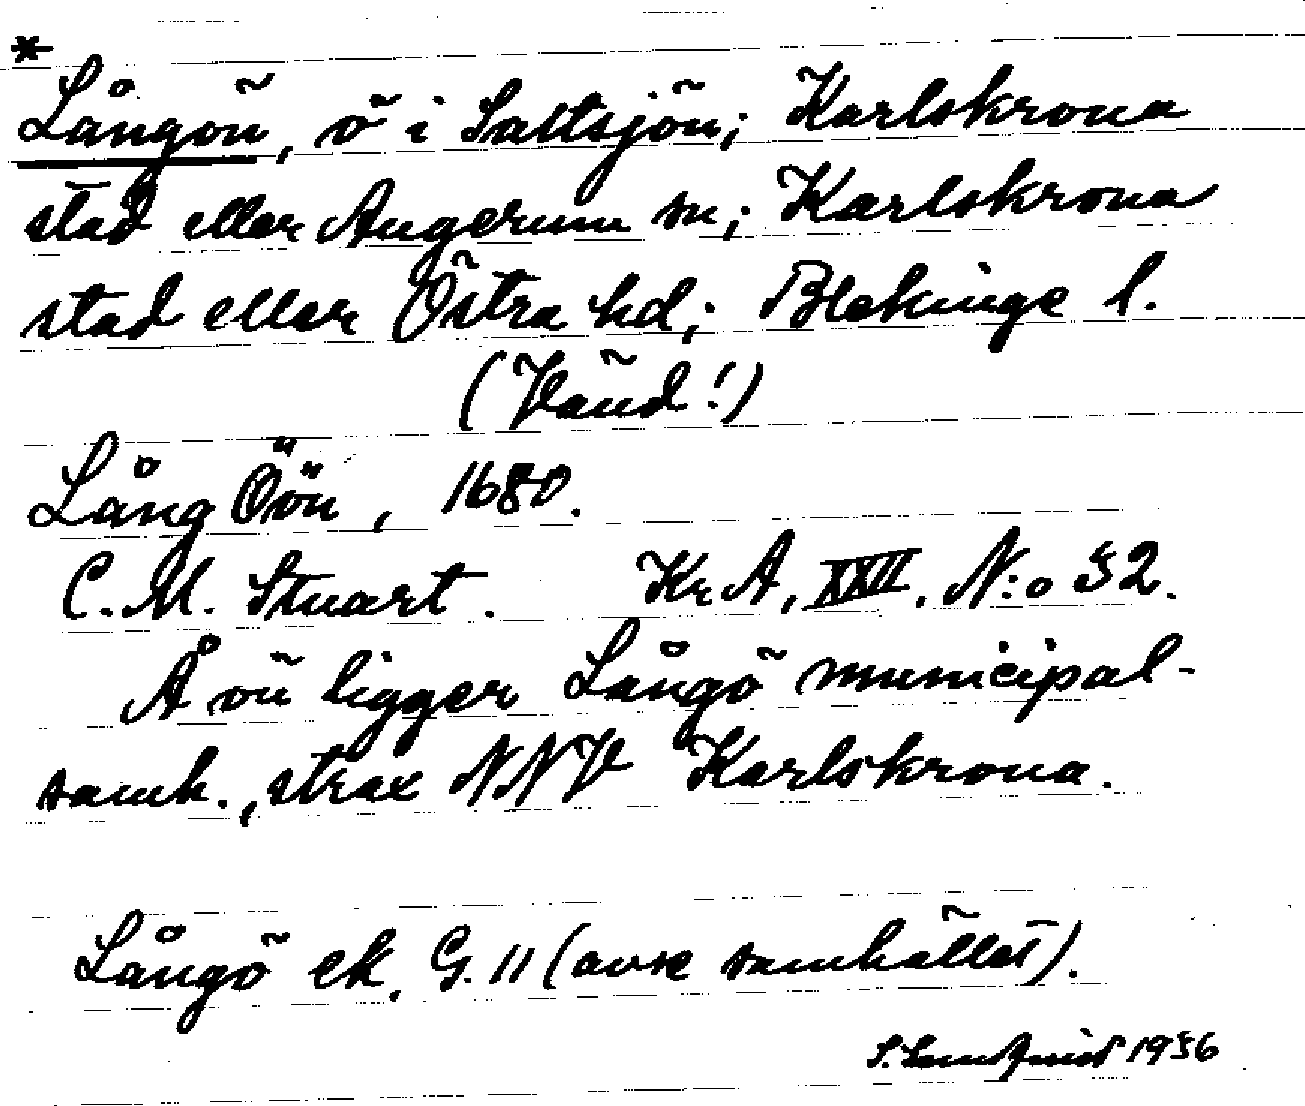 *
Långön, ö i Saltsjön; Karlskrona
stad eller Augerum sn; Karlskrona
stad eller Östra hd; Blekinge l.
(Vänd!)
Lång Öön, 1680.
C. M. Stuart. KrA, XXII, N:o 52.
Å ön ligger Långö municipal-
samh., strax NNV Karlskrona.
Långö ek. G. 11 (avse samhället).
S. 1956